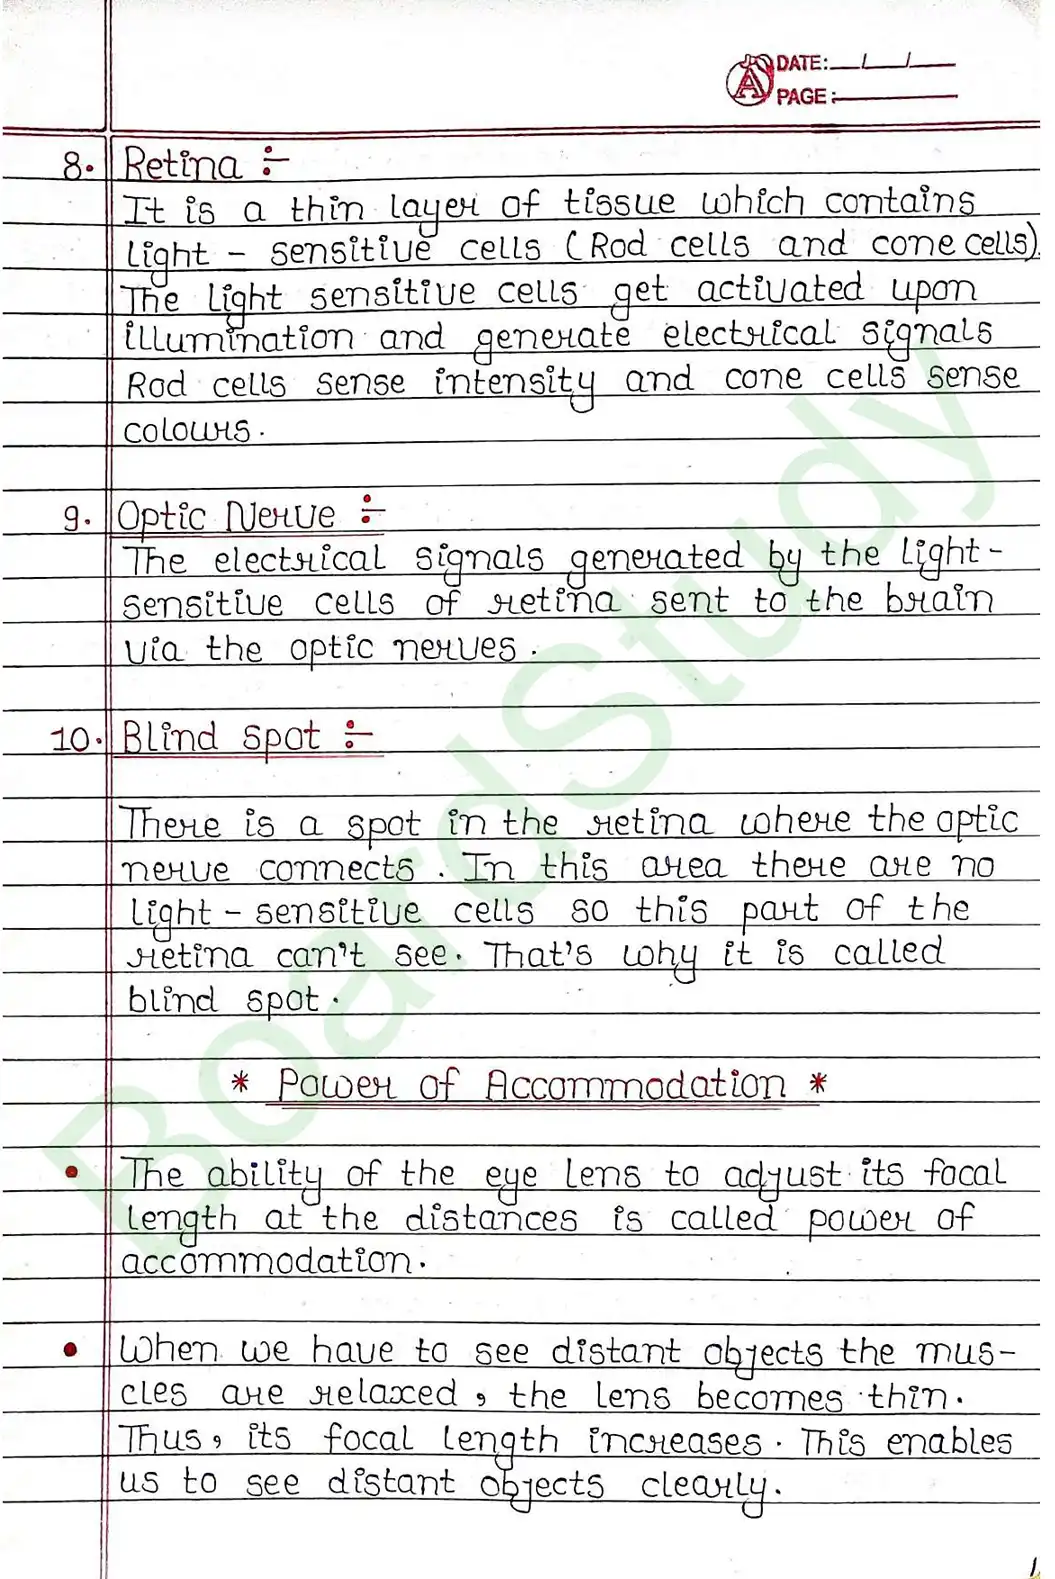 DATE: / /
PAGE:
8. Retina :-
It is a thin layer of tissue which contains
light - sensitive cells (Rod cells and cone cells).
The light sensitive cells get activated upon
illumination and generate electrical signals
Rod cells sense intensity and cone cells sense
colours.
9. Optic Nerve :-
The electrical signals generated by the light-
sensitive cells of retina sent to the brain
via the optic nerves.
10. Blind spot :-
There is a spot in the retina where the optic
nerve connects. In this area there are no
light - sensitive cells so this part of the
retina can't see. That's why it is called
blind spot.
* Power of Accommodation *
• The ability of the eye lens to adjust its focal
length at the distances is called power of
accommodation.
• When we have to see distant objects the mus-
cles are relaxed, the lens becomes thin.
Thus, its focal length increases. This enables
us to see distant objects clearly.
BoardStudy